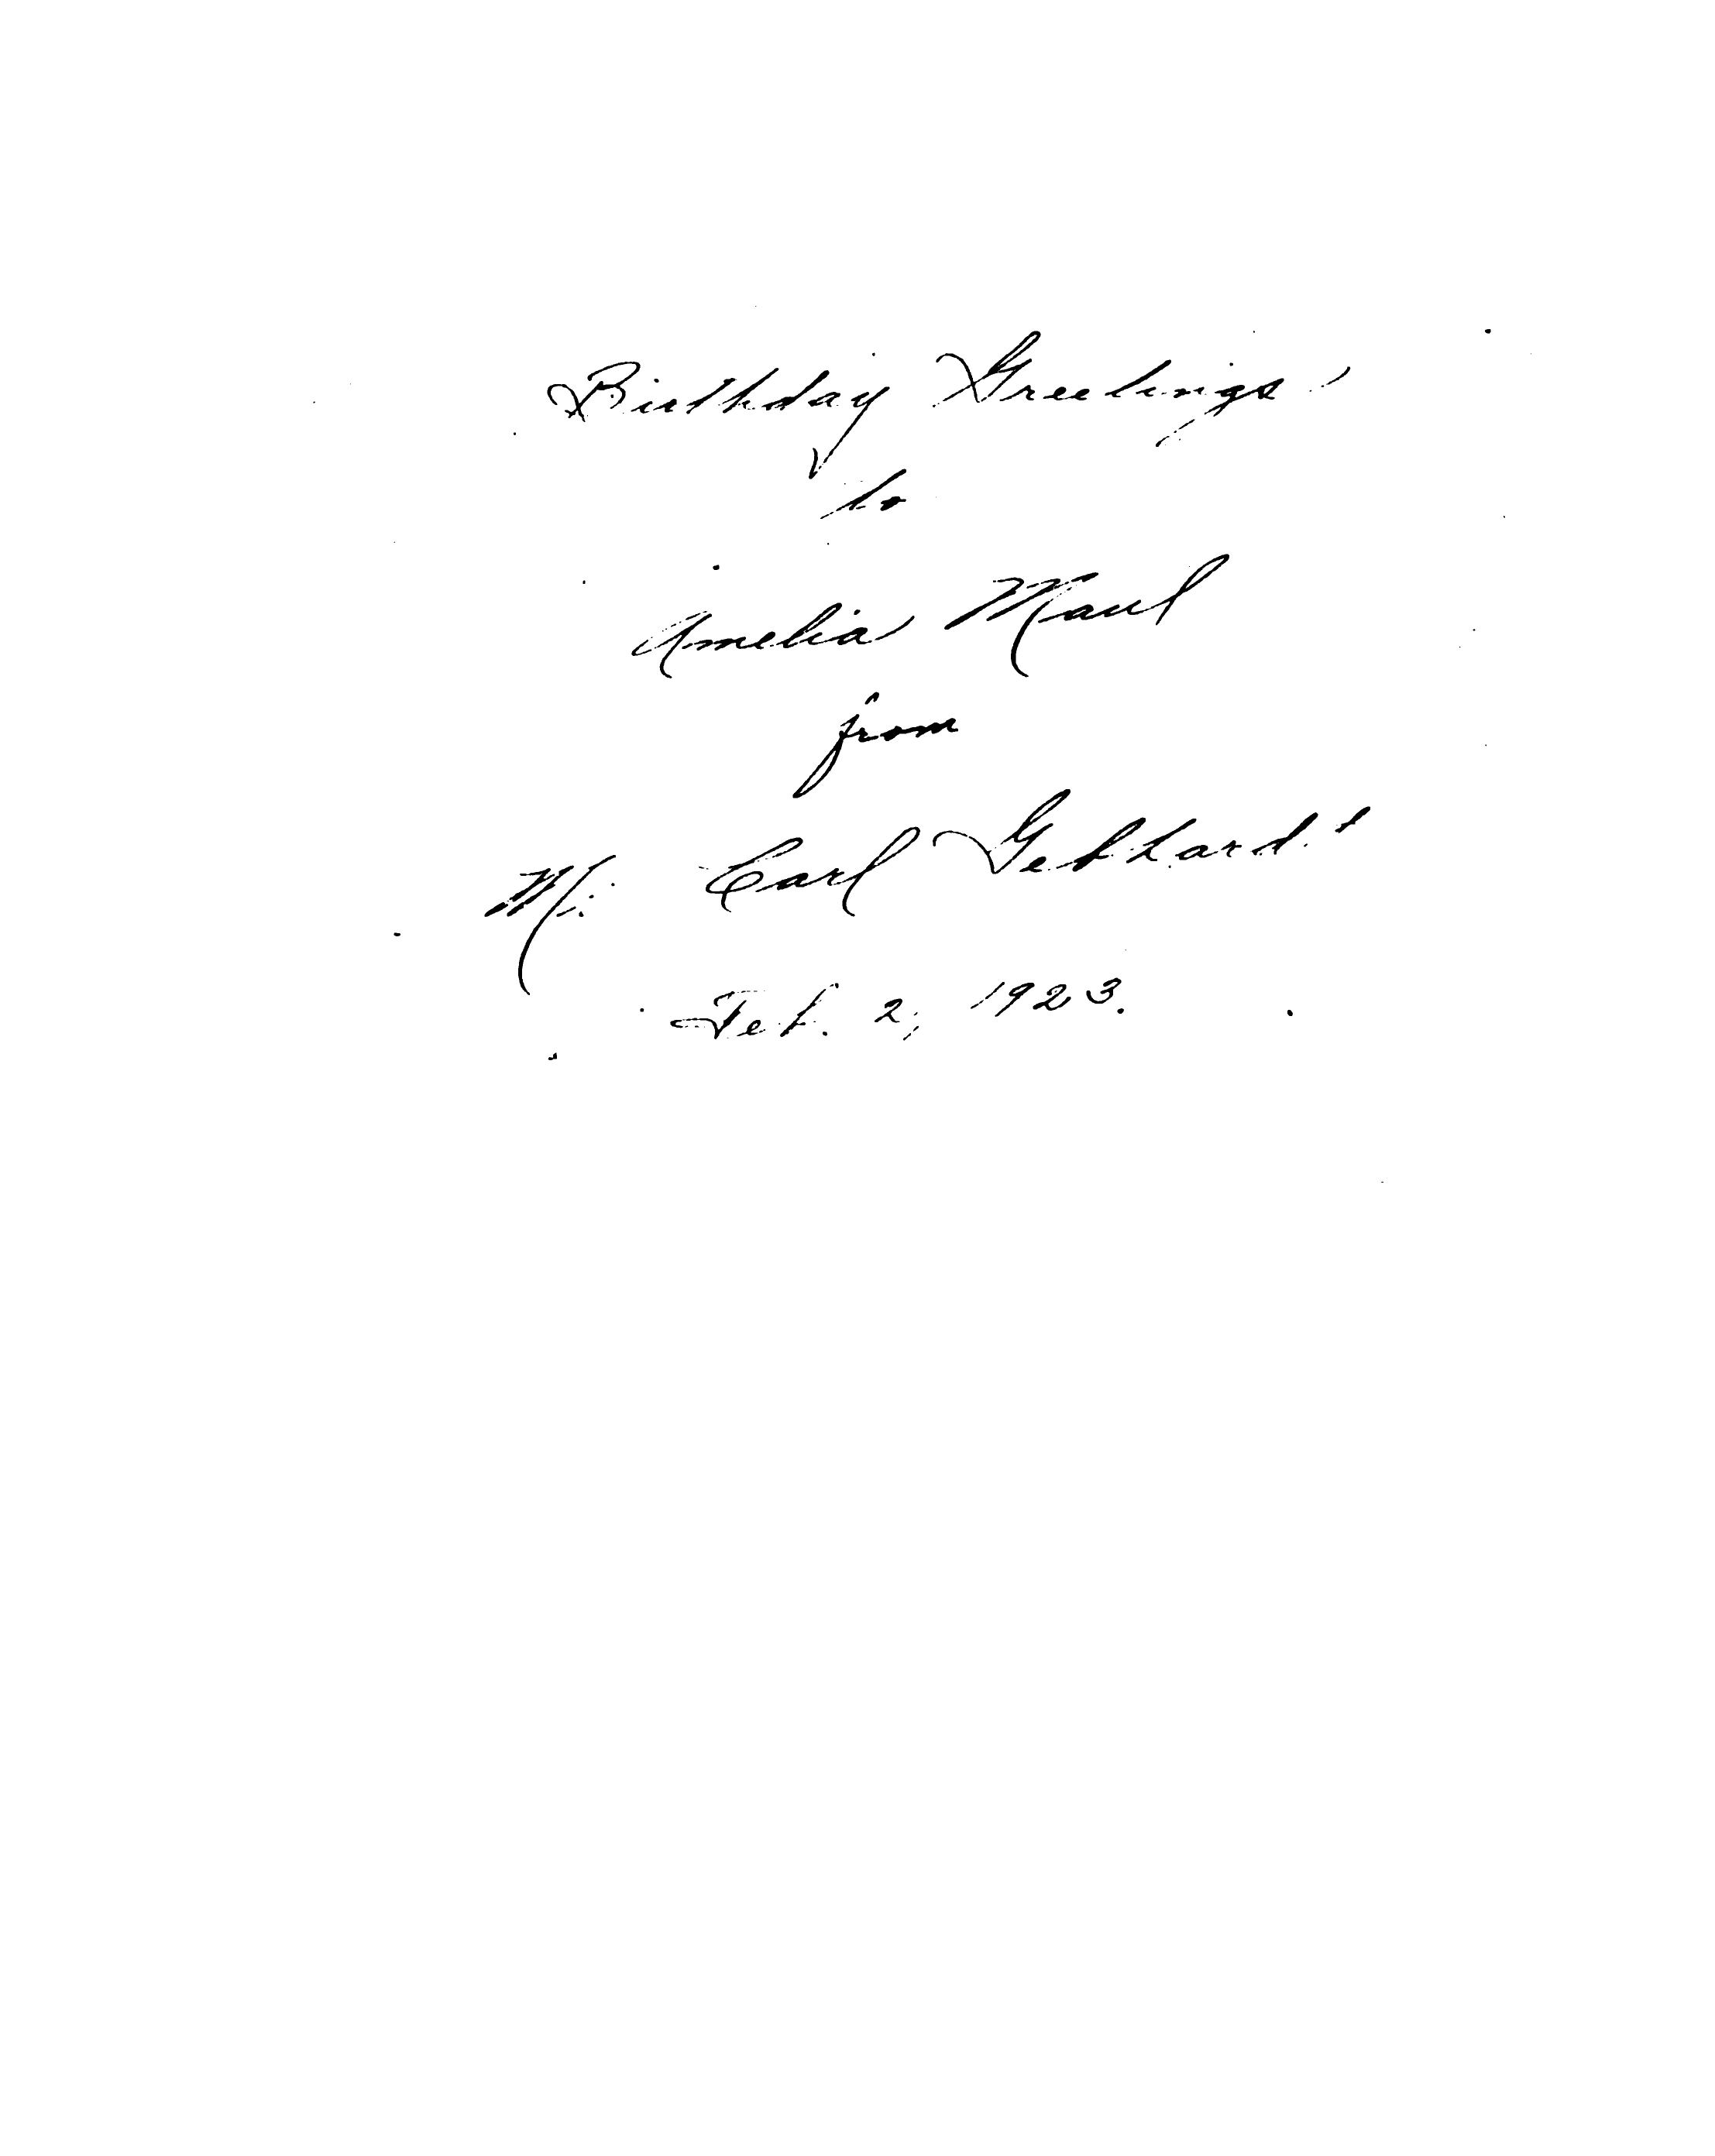 Birthday Greetings
to
Amelia Maul
from
Carl Gebhardt
Feb. 2, 1923.